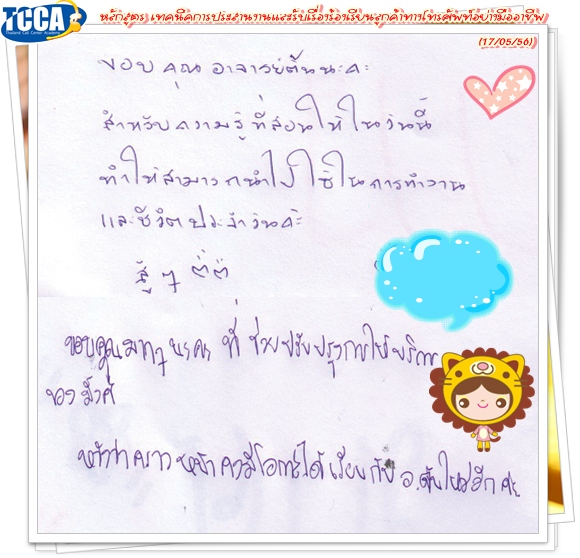 TCCA
Thailand Call Center Academy
หลักสูตร เทคนิคการประสานงานและรับเรื่องร้องเรียนลูกค้าทางโทรศัพท์อย่างมืออาชีพ
(17/05/56)
ขอบคุณอาจารย์ตั้นนะคะ
สำหรับความรู้ที่สอนให้ในวันนี้
ทำให้สามารถนำไปใช้ในการทำงาน
และชีวิตประจำวันค่ะ
สู้ ๆ
ขอบคุณมากๆ นะคะ ที่ช่วยปรับปรุงการให้บริการ
ของ
หวังว่าคราวหน้าคงมีโอกาสได้เรียนกับ อ.ตั้นใหม่อีกค่ะ